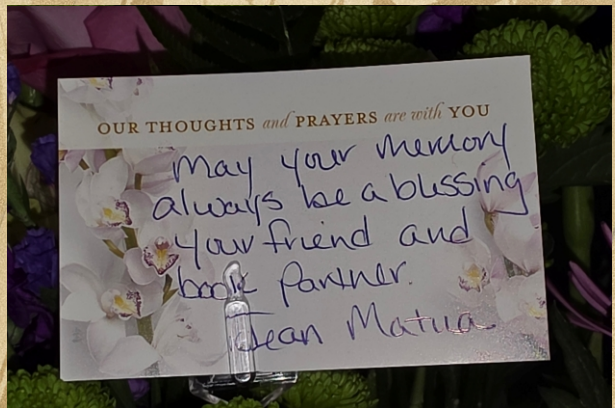 OUR THOUGHTS and PRAYERS are with YOU
May your memory
always be a blessing
your friend and
book partner.
Jean Matua